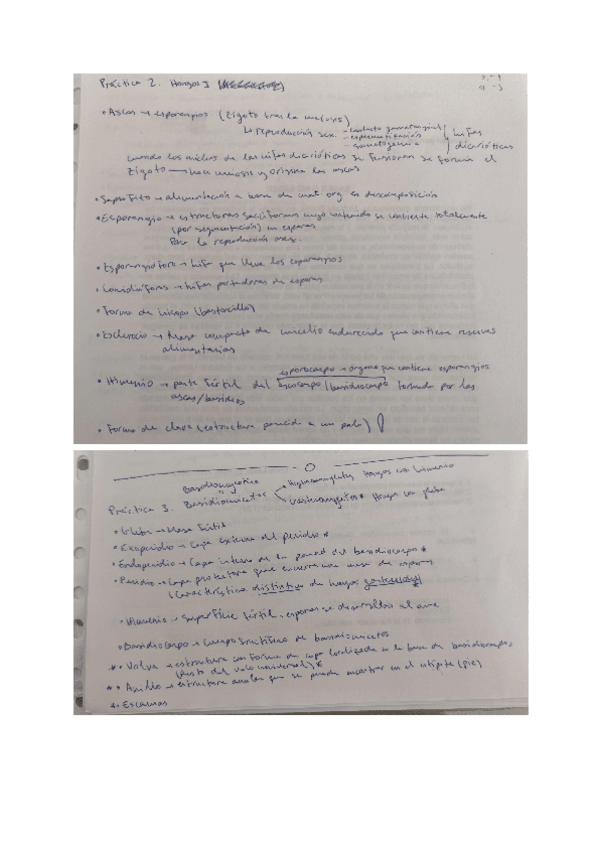 Práctica 2. Hongos I
• Ascas → esporangios (Zigoto tras la meiosis)
↳ reproducción sex. - contacto gametangial
- espermatización
- somatogamia
hifas dicarióticas
cuando los núcleos de las hifas dicarióticas se fusionan se forma el
Zigoto → hace meiosis y origina las ascas
• Saprófito → alimentación a base de mat org en descomposición
• Esporangio → estructuras saciformes cuyo contenido se convierte totalmente
(por segmentación) en esporas
Para la reproducción asex.
• Esporangióforo → hifa que lleva los esporangios
• Conidióforos → hifas portadoras de esporas
• Forma de hisopo (bastoncillo)
• Esclerocio → Masa compacta de micelio endurecido que contiene reservas
alimentarias
esporocarpo → órgano que contiene esporangios
• Himenio → parte fértil del ascocarpo/basidiocarpo formado por las
ascas/basidios
• Forma de clava (estructura parecida a un palo)
Himenomycetes Hongos con himenio
Práctica 3. Basidiomicetos
Gasteromycetes Hongos con gleba
• Gleba → Masa fértil
• Exoperidio → Capa externa del peridio *
• Endoperidio → Capa interna de la pared del basidiocarpo *
• Peridio → Capa protectora que encierra una masa de esporas
(Característica distintiva de hongos
• Himenio → superficie fértil, esporas se desarrollan al aire
• Basidiocarpo → Cuerpo fructífero de basidiomicetos
* • Volva → estructura con forma de copa localizada en la base de basidiocarpos
(resto del velo universal) *
* • Anillo → estructura anular que se puede encontrar en el estípite (pie)
* • Escamas